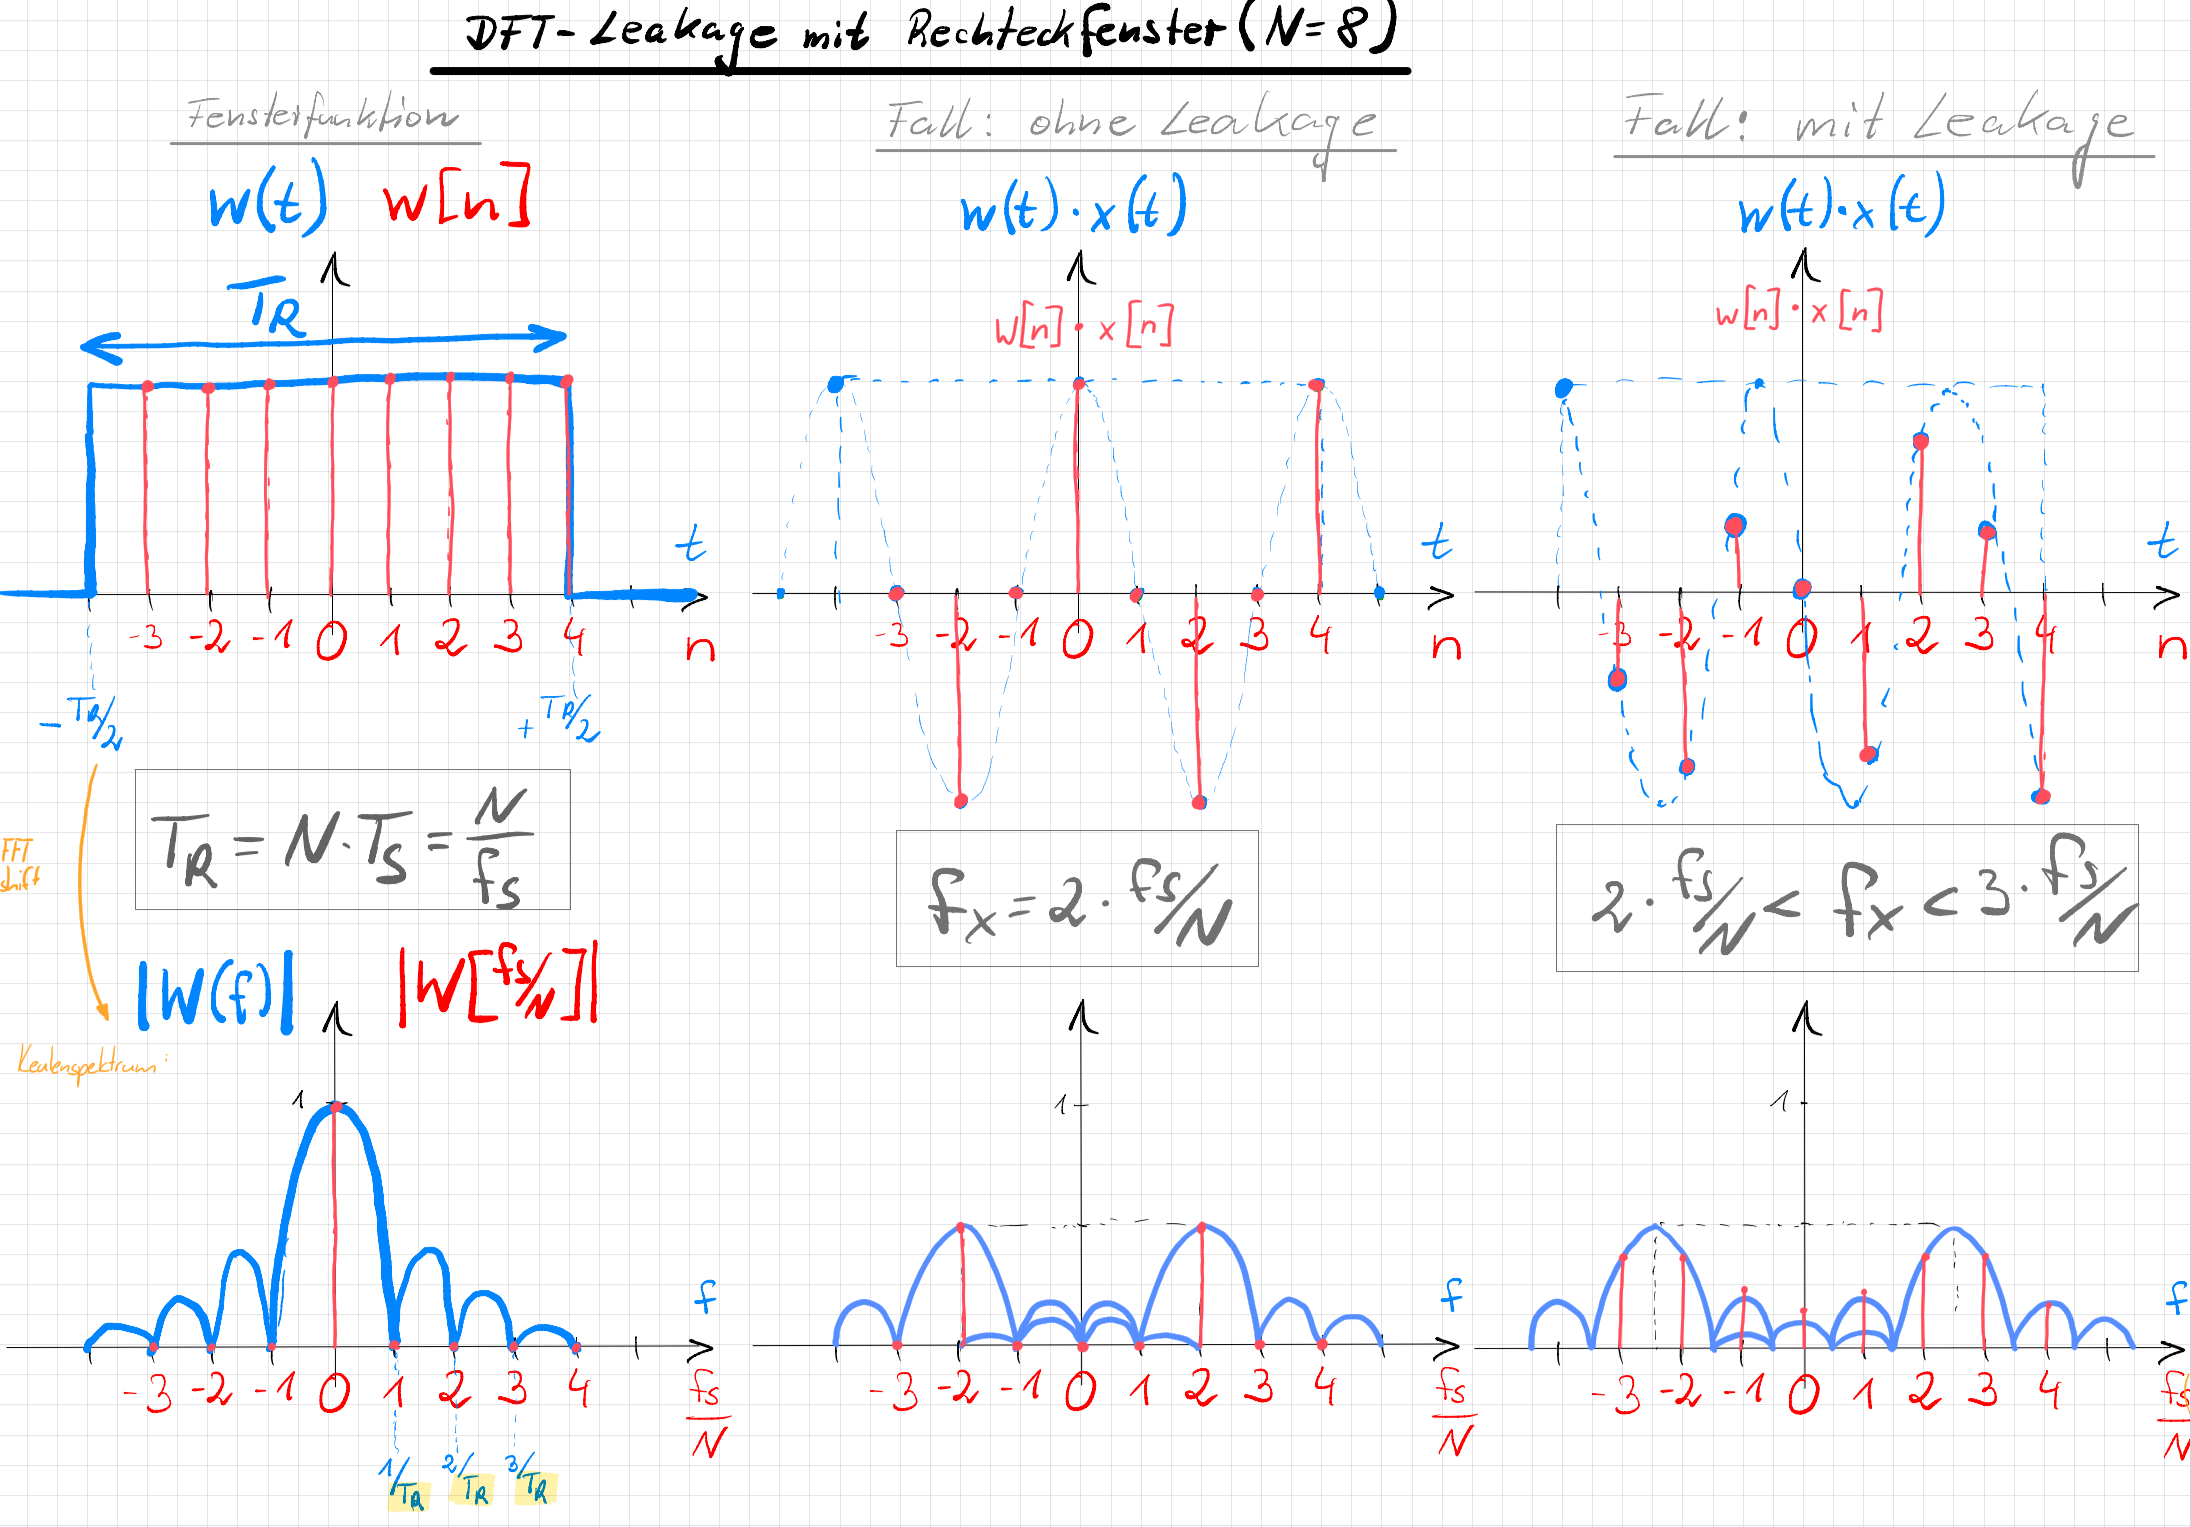 DFT-Leakage mit Rechteckfenster (N=8)
Fensterfunktion
w(t) w[n]
T_R
t
-3 -2 -1 0 1 2 3 4 n
-T_R/2 +T_R/2
T_R = N·T_S = N/f_S
FFT
shift
|W(f)| |W[fs/N]|
Keulenspektrum:
1
f
-3 -2 -1 0 1 2 3 4 fs/N
1/T_R 2/T_R 3/T_R
Fall: ohne Leakage
w(t)·x(t)
w[n]·x[n]
t
-3 -2 -1 0 1 2 3 4 n
f_x = 2·fs/N
1
f
-3 -2 -1 0 1 2 3 4 fs/N
Fall: mit Leakage
w(t)·x(t)
w[n]·x[n]
t
-3 -2 -1 0 1 2 3 4 n
2·fs/N < f_x < 3·fs/N
1
f
-3 -2 -1 0 1 2 3 4 fs/N